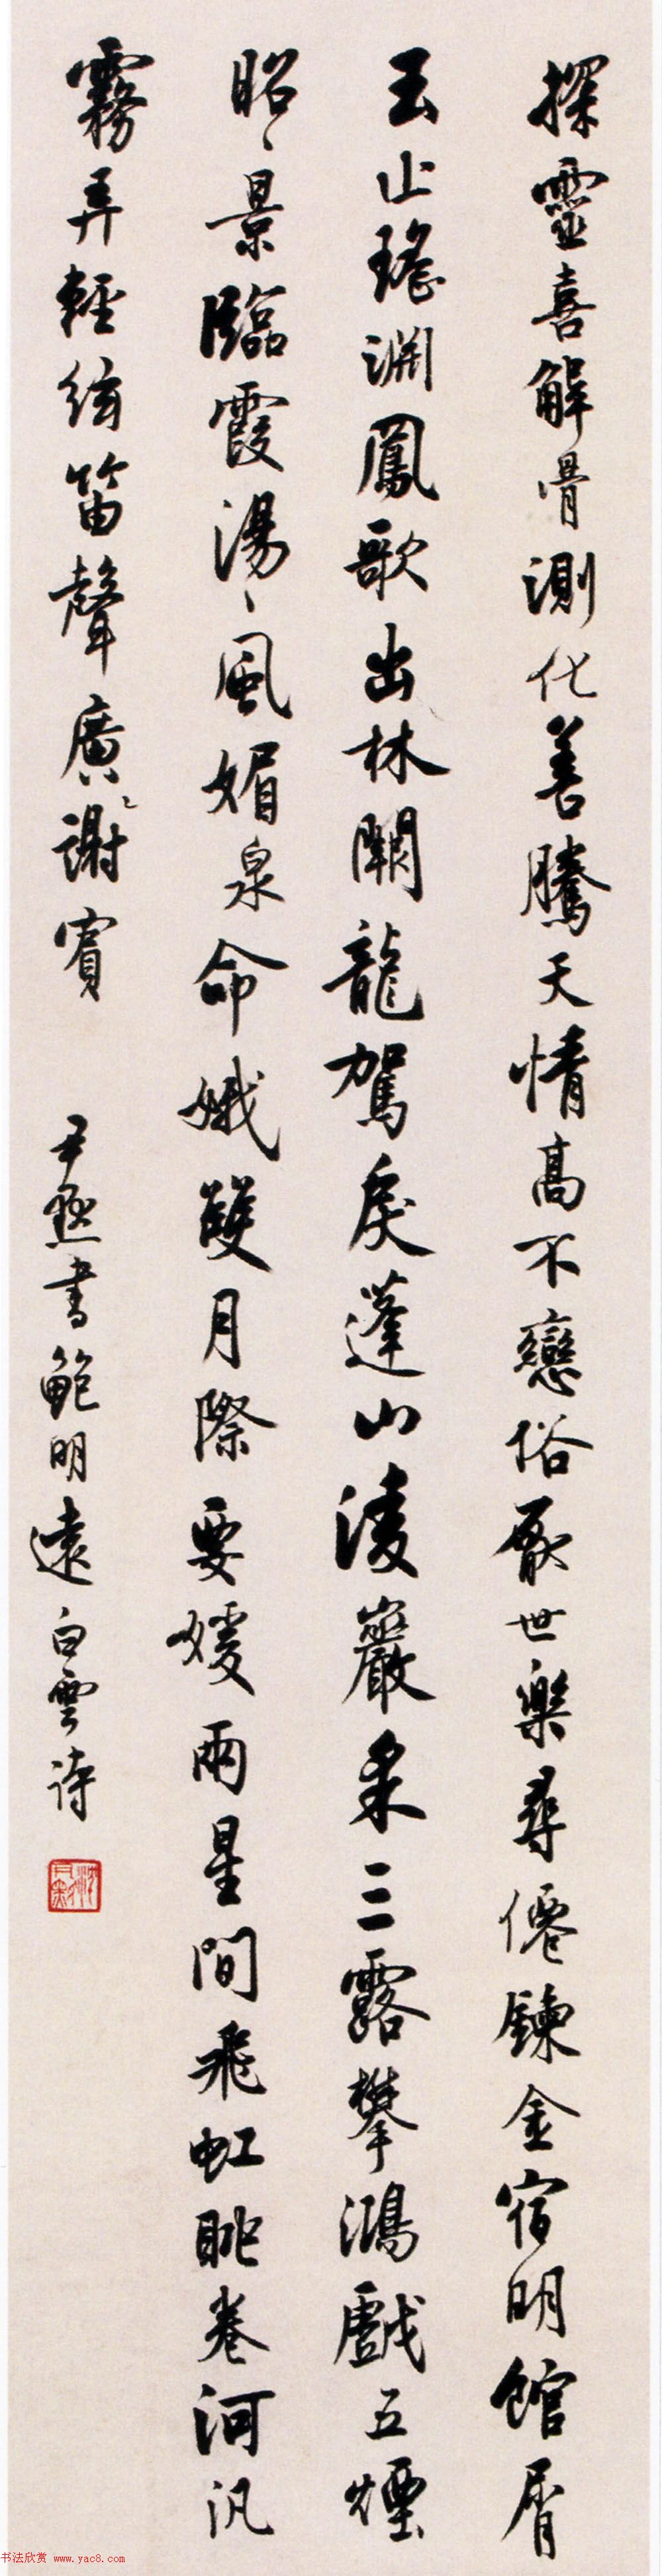 探靈喜解骨測化善騰天情高不戀俗厭世樂尋僊鍊金宿明館屑
玉止瑤淵鳳歌出林闕龍駕戾蓬山淩巖采三露攀鴻戲五煙
昭〻景臨霞湯〻風媚泉命娥雙月際要媛兩星間飛虹眺卷河汎
霧弄輕絃笛聲廣〻謝賓
尹默書鮑明遠白雲詩
书法欣赏 www.yac8.com